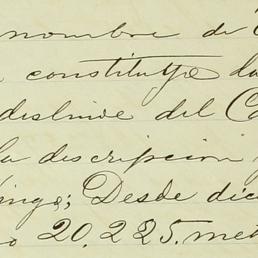 nombre de
constituye la
deslinde del Ca
la descripcion
ingo; Desde dic
o 20,225. met